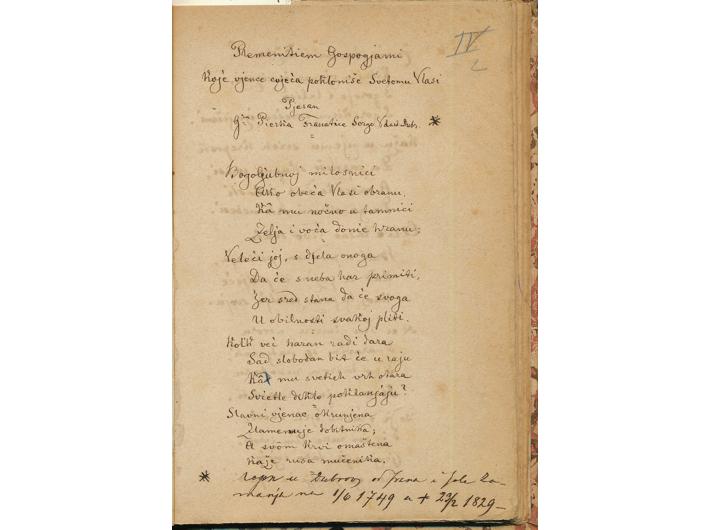 IV
Plemenitiem Gospogjami
Koje vjence cvjeća pokloniše Svetomu Vlasi
Pjesan
Gna Pierka Franatice Sorgo Vlast. Dub. *
Bogoljubnoj milosnici
Ako obeća Vlasi obranu,
Kâ mu noćno u tamnici
Zelja i voća donie hranu;
Veleći joj, s djela onoga
Da će s neba har primiti,
Jer sred stana da će svoga
U obilnosti svakoj pliti.
Kolk već haran radi dara
Sad slobodan bit će u raju
Kâ mu svetieh vrh otara
Svietle diklo poklanjaju?
Slavni vjenac okrunjena
Zlamenuje dobitnika;
A svôm krvi omaštena
Kaže rusa mučenika.
* u Dubrov. od Frana i Jele Za-
manja na 1/6 1749 a + 23/2 1829 –